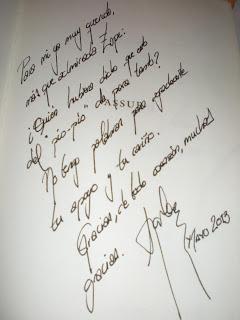 Para mi ya muy querido,
más que admirado Espi:
¿Quién hubiera dicho que esto
" CASSU
del "pio-pio" da para tanto?
No tengo palabras para agradecerte
tu apoyo y tu cariño.
Gracias, de todo corazón, muchas
gracias.
Mayo 2013